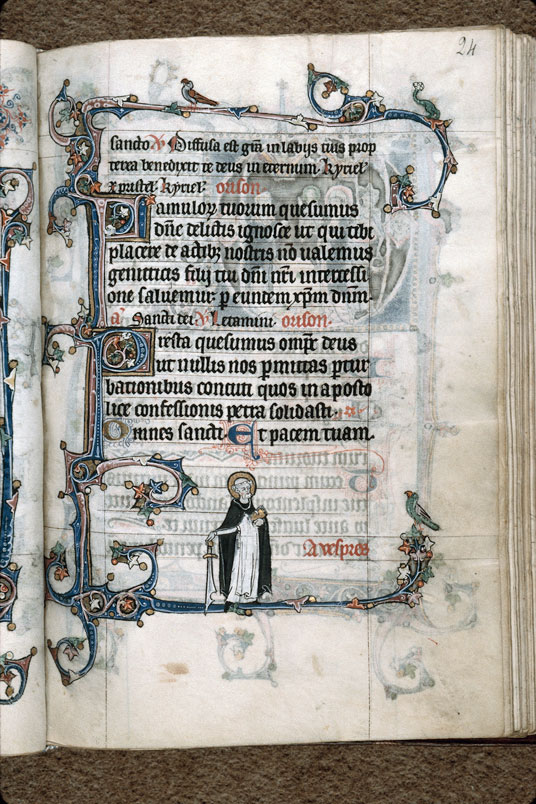 24
sancto ỹ Diffusa est grā in labijs tuis prop
terea benedixit te deus in eternum. kyriel'
xpristel' kyriel'. orison
Famulorꝝ tuorum quesumus
dn̄e delictis ignosce ut qui tibi
placere de actibꝫ nostris nō valemus
genitricis filij tui dn̄i nr̄i intercessi
one saluemur. p eundem xp̄m dn̄m.
a͛. Sancti dei ỹ Letamini. orison.
Presta quesumus omp̄s deus
ut nullis nos p̄mittas p̄tur
bationibus concuti quos in aposto
lice confessionis petra solidasti.
Omnes sancti. Et pacem tuam.
A vespres